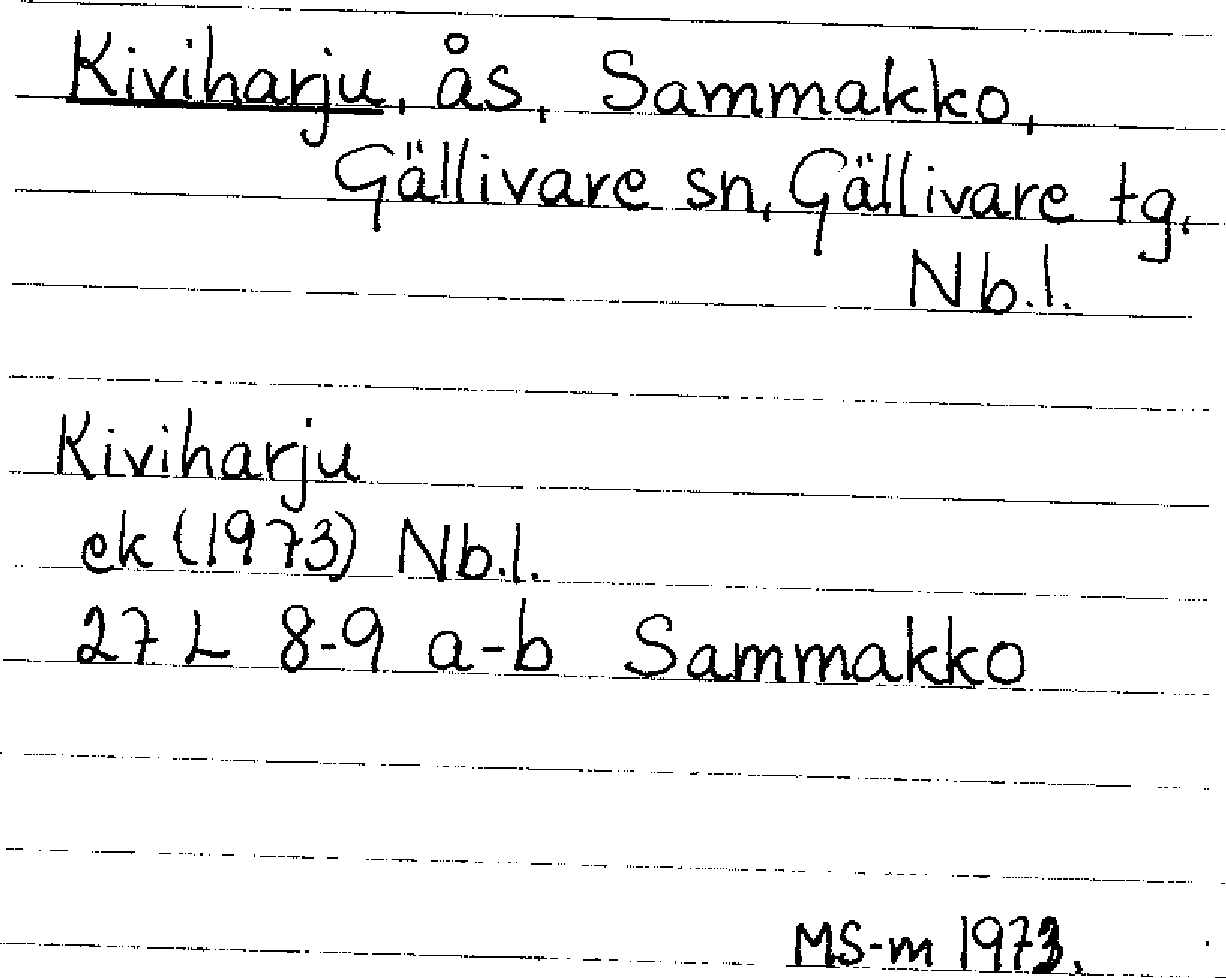 Kiviharju, ås, Sammakko,
Gällivare sn, Gällivare tg,
Nb.l.
Kiviharju
ek (1973) Nb.l.
27 L 8-9 a-b Sammakko
MS-m 1973.